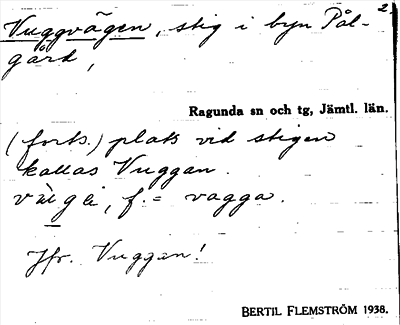 2.
Vuggvägen, stig i byn Pål-
gård,
Ragunda sn och tg, Jämtl. län.
(forts.) plats vid stigen
kallas Vuggan.
f. = vagga.
Jfr. Vuggan!
BERTIL FLEMSTRÖM 1938.